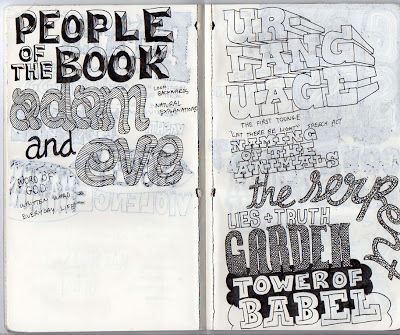 PEOPLE
OF
THE BOOK
adam
LOOK
BACKWARDS
NATURAL
EXPLANATIONS
and eve
WORD OF
GOD
WRITTEN WORD
EVERYDAY LIFE
UR-
LANG
UAGE
THE FIRST TOUNGE
"LET THERE BE LIGHT" SPEECH ACT
NAMING
OF THE
ANIMALS
the serpent
LIES + TRUTH
GARDEN
TOWER OF
BABEL